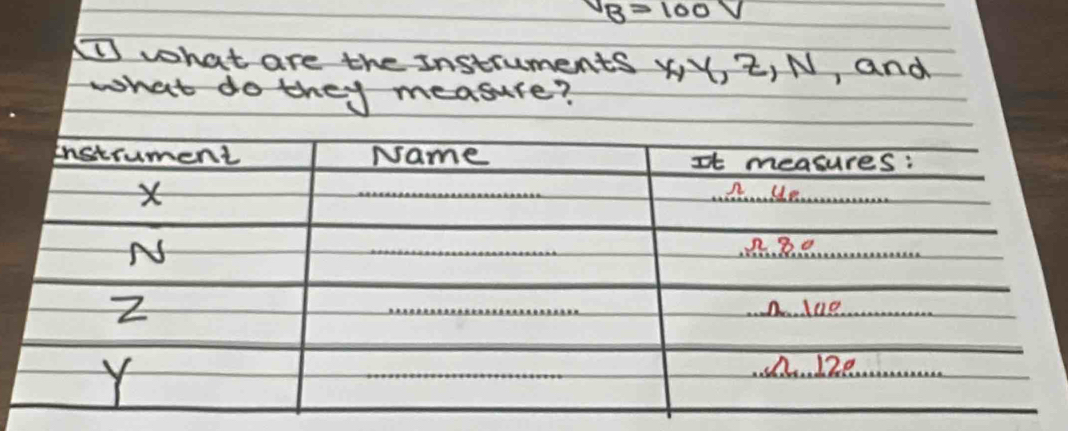 VB = 100 V
① what are the Instruments X, Y, Z, N, and
what do they measure?
Instrument Name It measures:
X .................... Ω 40
N .................... Ω 80
Z .................... Ω 100
Y .................... Ω 120